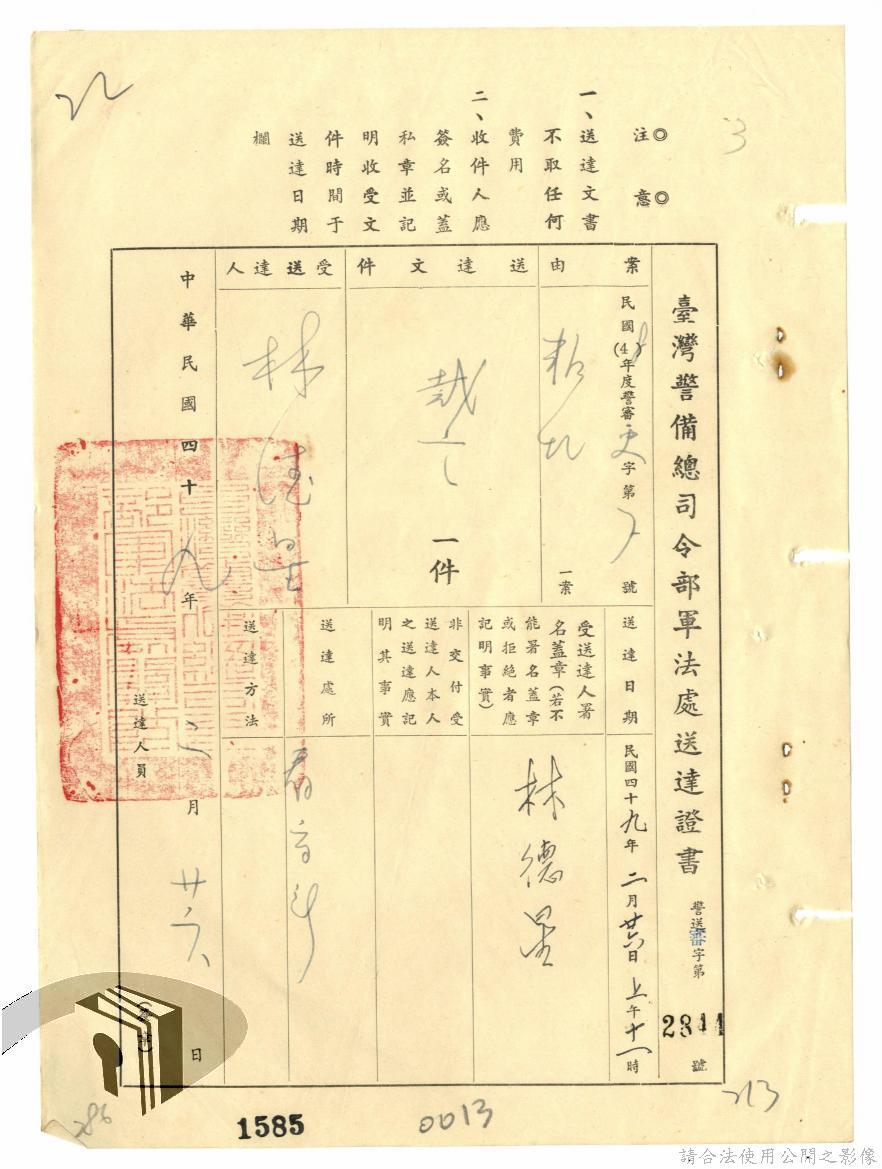 注意
一、送達文書
不取任何
費用
二、收件人應
簽名或蓋
私章並記
明收受文
件時間于
送達日期
欄
臺灣警備總司令部軍法處送達證書
警送審字第2844號
案由
民國(4)年度警審更字第號
一案
送達文件
一件
受送達人
林德星
送達日期
民國四十九年二月廿六日上午十一時
受送達人署
名蓋章(若不
能署名蓋章
或拒絕者應
記明事實)
林德星
非交付受
送達人本人
之送達應記
明其事實
送達處所
送達方法
中華民國四十九年二月廿六日
送達人員
22
3
286
1585
0013
213
請合法使用公開之影像